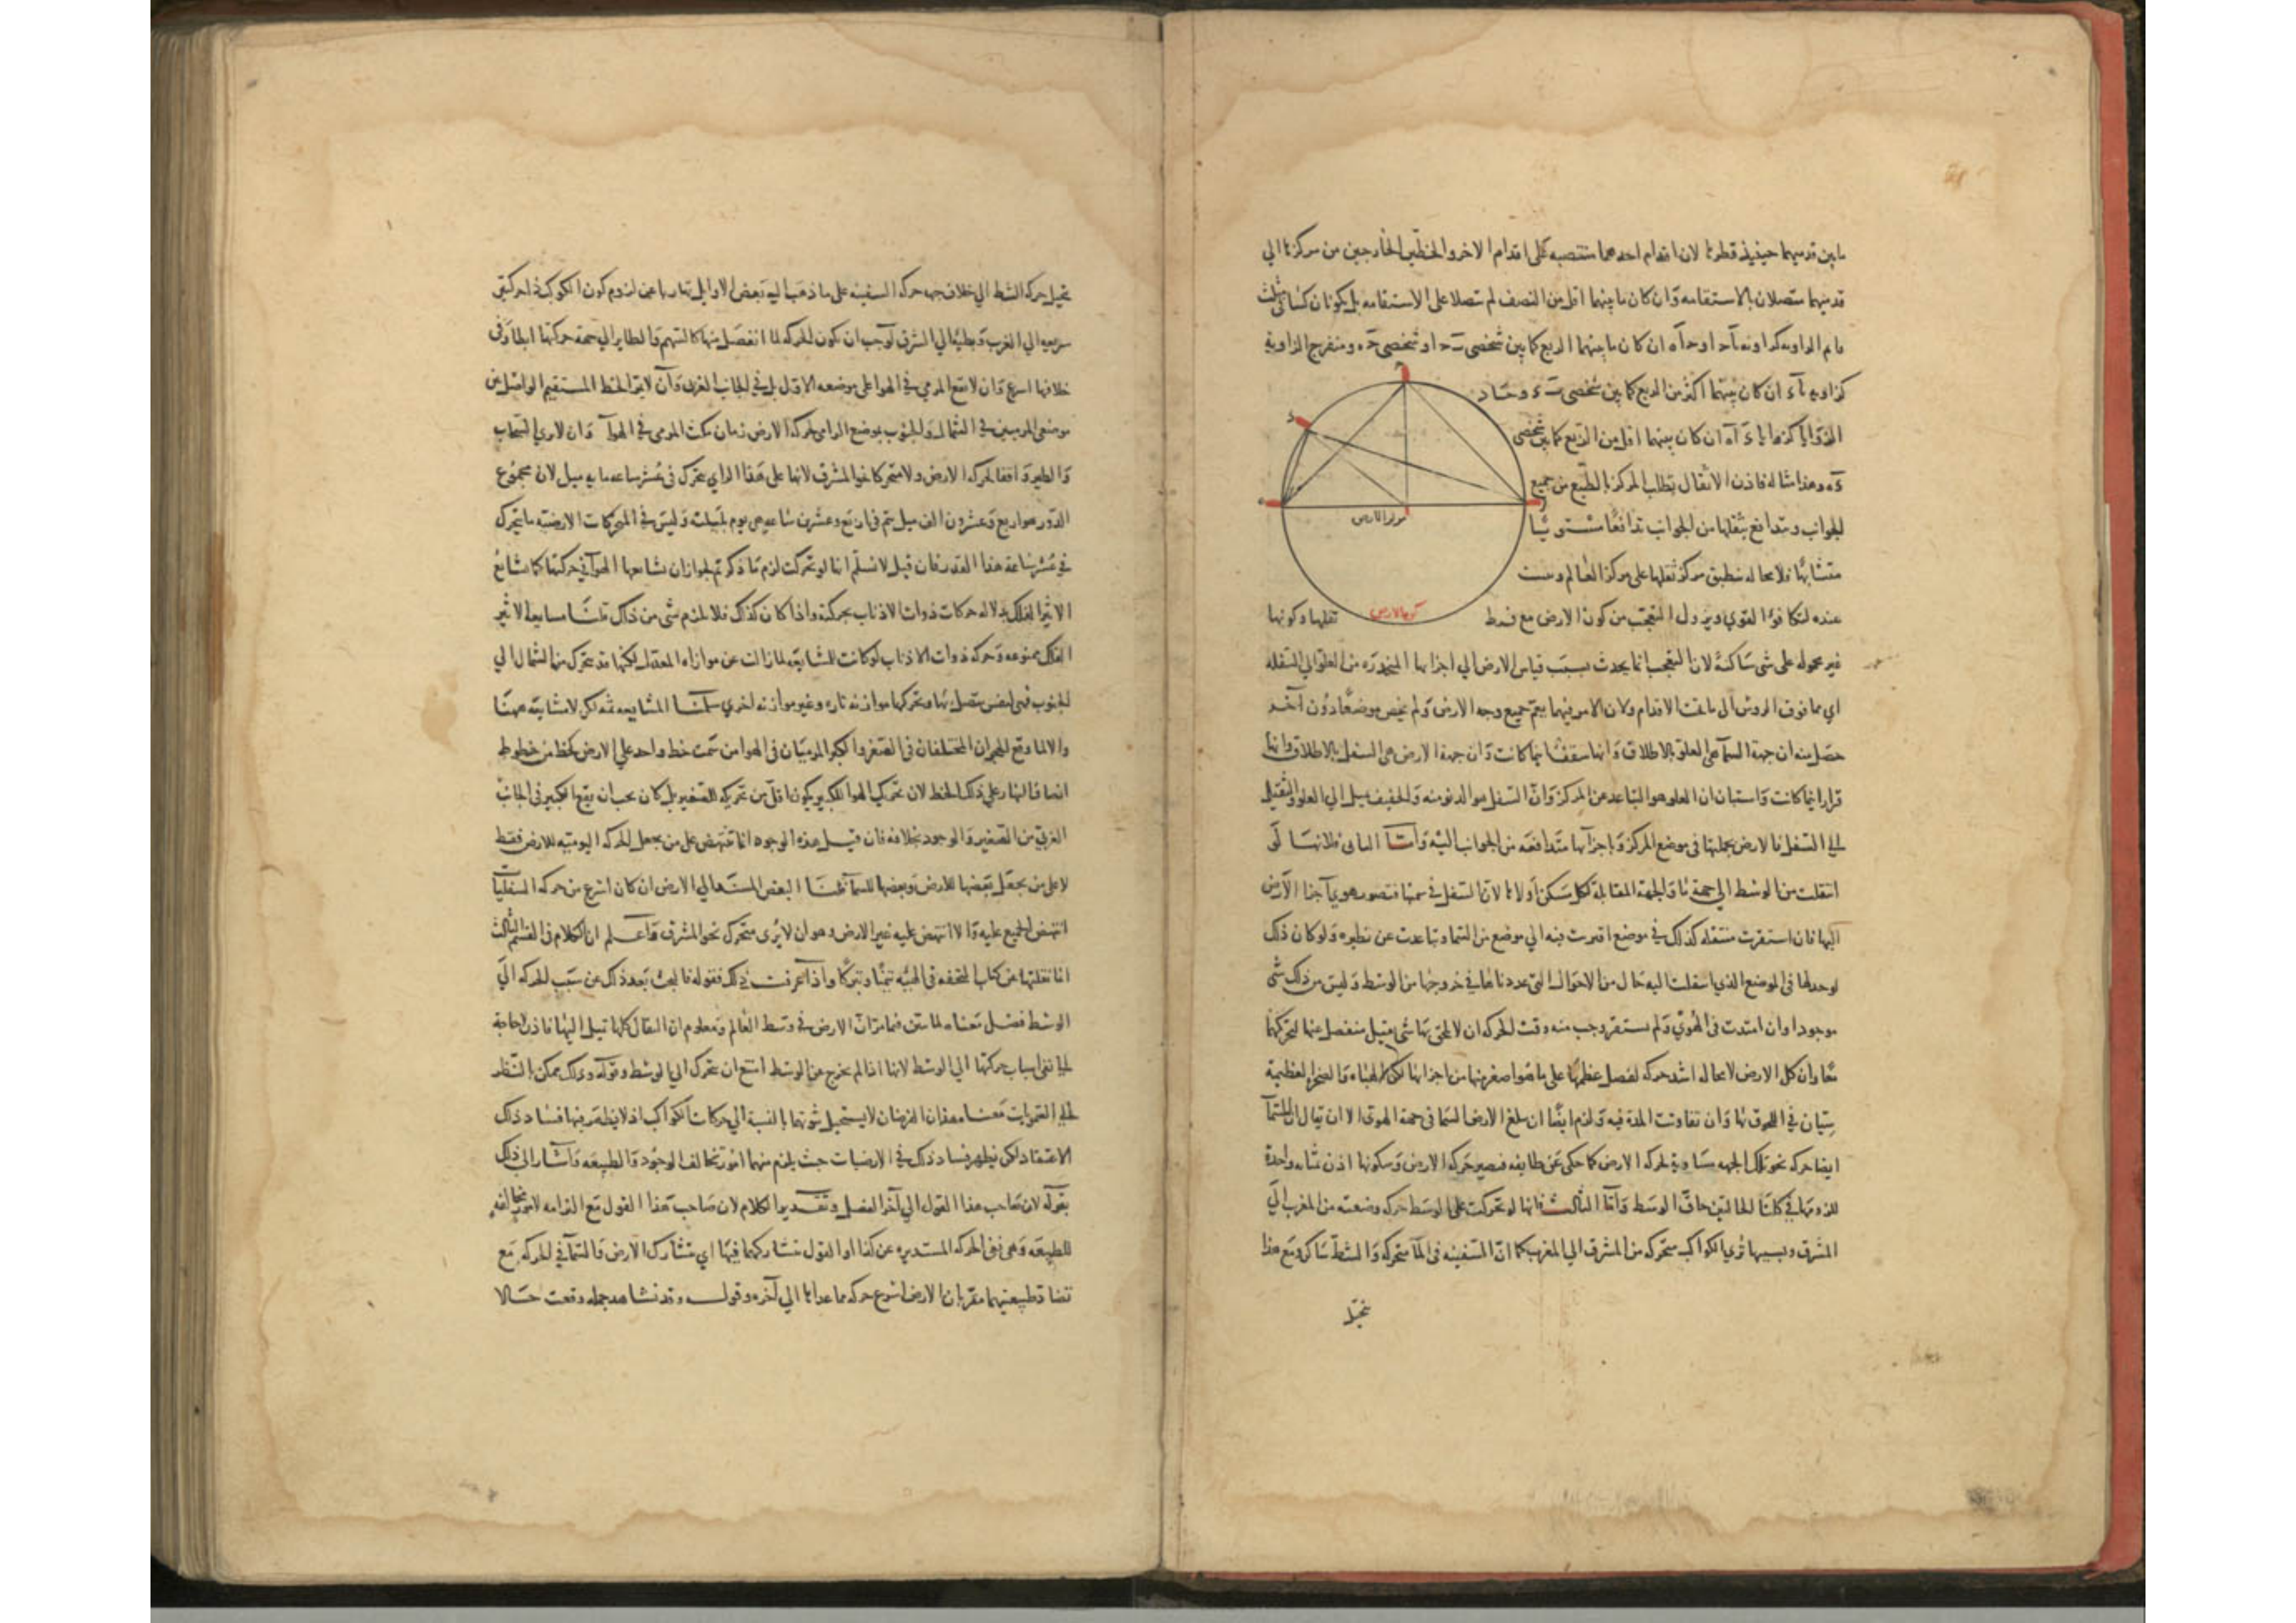 ما بين قدميهما حينئذ قطرها لان اقدام احدهما منتصبه على اقدام الاخر والخطين الخارجين من مركزها الي
قدميهما متصلان بالاستقامه وان كان ما بينهما اقل من النصف لم تتصلا على الاستقامه بل يكونان كساقي مثلث
ان كان ما بينهما الربع كما بين شخصى او شخصى ومنفرج الزاوية
كزاويه ان كان بينهما اكثر من الربع كما بين شخصى
الزوايا ان كان بينهما اقل من الربع كما بين شخصى
وهذا مثاله فاذن الاثقال تطلب المركز بالطبع من جميع
الجوانب وتدافع بثقلها من الجوانب تدافعا مستويا
متشابها فلا محاله ينطبق مركز ثقلها على مركز العالم
مركز الارض
كرة الارض
عنده لتكافؤ القوي ويزول التعجب من كون الارض مع فرط ثقلها وكونها
غير محموله على شى ساكنة لان التعجب انما يحدث بسبب قياس الارض الي اجزائها المنحدره من العلو الي السفله
اي مما فوق الروس الى ما تحت الاقدام ولان الامر فيهما يعم جميع وجه الارض ولم يخص موضعا دون آخر
حصل منه ان جهة السما هى العلو بالاطلاق وانها سقف اينما كانت وان جهة الارض هى السفل بالاطلاق وانها
قرار اينما كانت واستبان ان العلو هو التباعد عن المركز وان السفل هو الدنو منه والخفيف يميل الي العلو والثقيل
الي السفل فالارض بجملتها فى موضع المركز واجزاها متدافعه من الجوانب اليه واما الثانى فلانها لو
انتقلت من الوسط الي جهة ما والجهة المقابلة لكل مسكن اولا لان السفل فى سمتها فتصور هوي اجزا الارض
اليها فان استقرت منتقله كذلك في موضع اقتربت فيه الي موضع من السما وتباعدت عن نظيره ولو كان ذلك
لوجد لها فى الموضع الذي انتقلت اليه حال من الاحوال التى عددناها في خروجها من الوسط وليس من ذلك شى
موجودا وان امتدت فى الهوي ولم يستقر وجب منه وقت الحركه ان لا يلحق بها شى ثقيل منفصل عنها لتحركهما
معا وان كل الارض لا محاله اشد حركه لفضل عظمها على ما هو اصغر منها من اجزائها لكن الهباه والصخرة العظيمة
سيان في اللحوق بها وان تفاوتت المدة فيه ولزم ايضا ان يبلغ الارض السما فى جهة الهوى الا ان يقال ان للسما
ايضا حركه نحو تلك الجهه مساوية لحركه الارض كما حكى عن طايفه فيصير حركه الارض وسكونها اذن بمثابه واحدة
للزومها في كلتا الحالتين حاق الوسط واما الثالث فانها لو تحركت على الوسط حركه وضعيه من المغرب الي
المشرق وبسببها تري الكواكب متحركه من المشرق الي المغرب كما ان السفينه فى الما متحركه والشط ساكن ومع هذا
يخيل
يخيل حركه الشط الي خلاف جهه حركه السفينه على ما ذهب اليه بعض الاوايل تهاربا عن لزوم كون الكوكب ذا حركتى
سريعه الي الغرب وبطيئه الي الشرق لوجب ان يكون الحركه لما انفصل منها كالسهم والطاير الي جهة حركتها ابطا وفى
خلافها اسرع وان لا يقع المرمي في الهوا على موضعه الاول بل في الجانب الغربى وان لا يمر الخط المستقيم الواصل بين
موضعى المرميين في الشمال والجنوب بموضع الرامى لحركه الارض زمان مكث المرمى في الهوآ وان لا يري السحاب
والطير واقفا لحركه الارض ولا متحركا نحو المشرق لانها على هذا الراي يتحرك فى عشر ساعه مايه ميل لان مجموع
الدور هو اربع وعشرون الف ميل يتم في اربع وعشرين ساعه هى يوم بليلته وليس في المحركات الارضيه ما يتحرك
في عشر ساعة هذا القدر فان قيل لا نسلم انها لو تحركت لزم ما ذكرتم لجواز ان يشايعها الهوآ في حركتها كما شايع
الاثير الفلك بدلاله حركات ذوات الاذناب بحركته واذا كان كذلك فلا يلزم شى من ذلك قلنا مشايعه الاثير
الفلك ممنوعه وحركه ذوات الاذناب لو كانت للمشايعه لما زالت عن موازاه المعدل لكنها قد يتحرك من الشمال الي
الجنوب فهى لنفس متصل بها وتحركها موازنه تاره وغير موازنه اخري سلمنا المشايعه ثمه لكن لا مشايعه ههنا
والا لما وقع الحجران المختلفان فى الصغر والكبر المرميان فى الهوا من سمت خط واحد على الارض كخط من خطوط
انصاف النهار على ذلك الخط لان تحريك الهوا للكبير يكون اقل من تحريكه للصغير بل كان يجب ان يقع الكبير فى الجانب
الغربي من الصغير والوجود بخلافه فان قيل هذه الوجوه انما تنتهض على من يجعل الحركه اليوميه للارض فقط
لا على من يجعل بعضها للارض وبعضها للسما قلنا البعض المسند الي الارض ان كان اسرع من حركه السفليات
انتهض الجميع عليه والا انتهض عليه غير الارض وهو ان لا يري متحرك نحو المشرق واعلم ان الكلام فى القسم الثالث
انما نقلتها عن كتاب التحفه فى الهيئه تيمنا وتبركا واذا عرفت ذلك فقوله فالبحث بعد ذلك عن سبب الحركه الي
الوسط فضل معناه لما تبين فيما مر ان الارض في وسط العالم ومعلوم ان الثقال كلها تميل اليها فاذن لا حاجة
الي نفى اسباب حركتها الي الوسط لانها اذا لم يخرج عن الوسط امتنع ان يتحرك الي الوسط وقوله وذلك ممكن بالنظر
الي العلويات معنا معه ان الفرضان لا يستحيل ثبوتهما بالنسبة الي حركات الكواكب اذ لا يظهر فيها فساد ذلك
الاعتقاد لكن يظهر فساد ذلك في الارضيات حيث يلزم منهما امور تخالف الوجود والطبيعه واشار الي ذلك
بقوله لان صاحب هذا القول الي آخر الفصل وتقدير الكلام لان صاحب هذا القول مع التزامه لامور مخالفه
للطبيعه وهى نفى الحركه المستديره عن كذا او القول بتشاركهما فيها اي بتشارك الارض والسما في الحركه مع
تضاد طبيعتيهما مقر بان الارض اسرع حركه مما عداها الي آخره وقوله وقد نشاهد جمله وقعت حالا